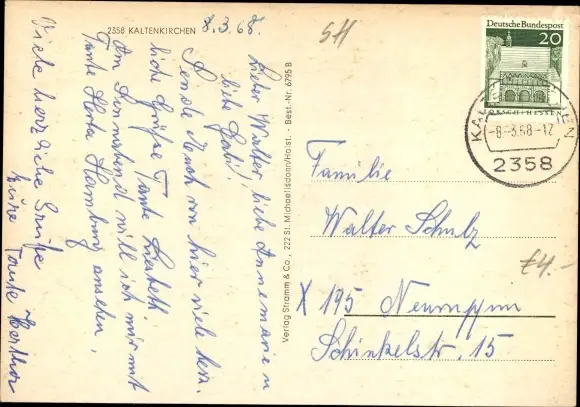 2358 KALTENKIRCHEN 8.3.68.
Lieber Walter, liebe Annemarie u
liebe Gabi!
Sende Euch von hier viele herz.
liche Grüße Tante Lisbeth
Am Sonnabend will ich mir mit
Tante Herta Hamburg ansehen,
Viele herzliche Grüße
Eure Tante Martha
Verlag Stramm & Co., 222 St. Michaelisdonn/Holst. - Best.-Nr. 6795 B
SH
Deutsche Bundespost
20
LORSCH · HESSEN
KALTENKIRCHEN
-8.-3.68-17
2358
Familie
Walter Schulz
€4.-
X 195 Neuruppin
Schinkelstr. 15